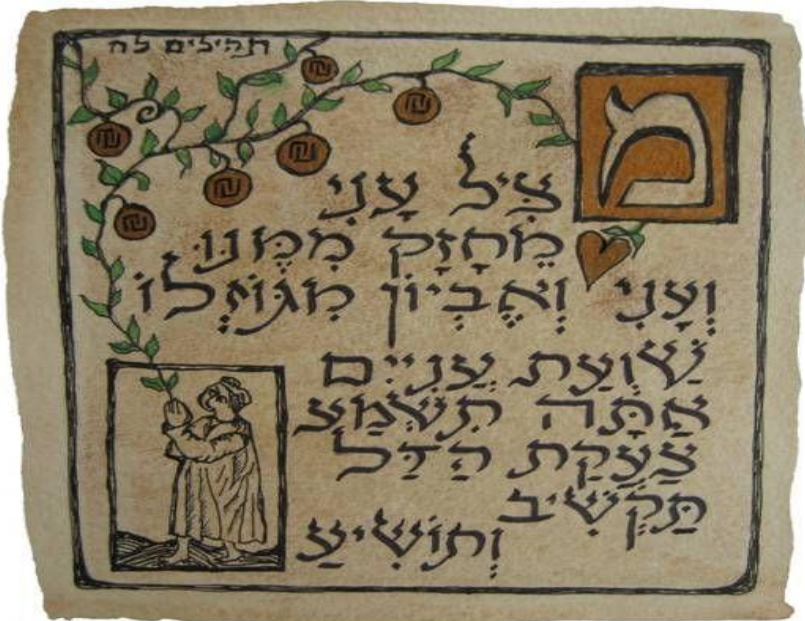 תהילים לה
מַצִּיל עָנִי
מֵחָזָק מִמֶּנּוּ
וְעָנִי וְאֶבְיוֹן מִגּוֹזְלוֹ
שַׁוְעַת עֲנִיִּים
אַתָּה תִּשְׁמַע
צַעֲקַת הַדַּל
תַּקְשִׁיב
וְתוֹשִׁיעַ